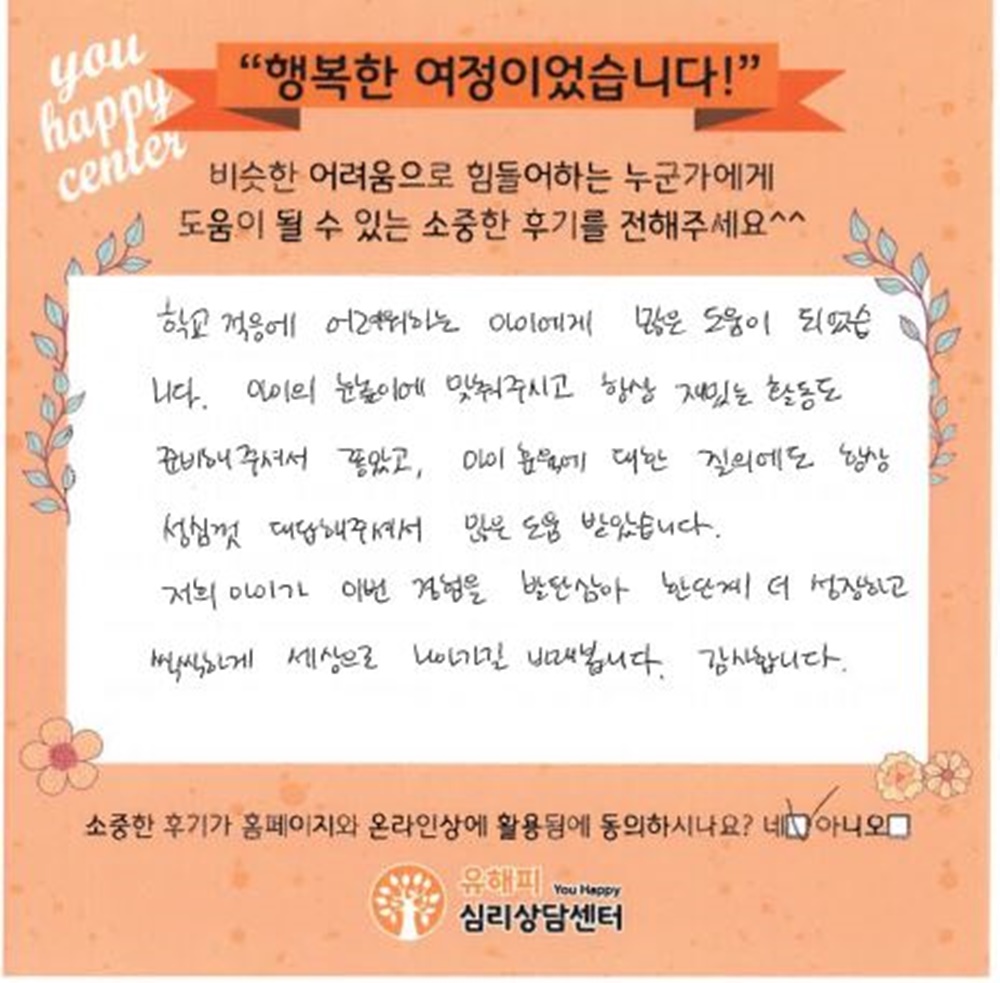 you
happy
center
“행복한 여정이었습니다!”
비슷한 어려움으로 힘들어하는 누군가에게
도움이 될 수 있는 소중한 후기를 전해주세요^^
학교 적응에 어려워하는 아이에게 많은 도움이 되었습
니다. 아이의 눈높이에 맞춰주시고 항상 재밌는 활동도
준비해주셔서 좋았고, 아이 훈육에 대한 질의에도 항상
성심껏 대답해주셔서 많은 도움 받았습니다.
저희 아이가 이번 경험을 발단삼아 한단계 더 성장하고
씩씩하게 세상으로 나아가길 바래봅니다. 감사합니다.
소중한 후기가 홈페이지와 온라인상에 활용됨에 동의하시나요? 네 아니오
유해피 You Happy
심리상담센터